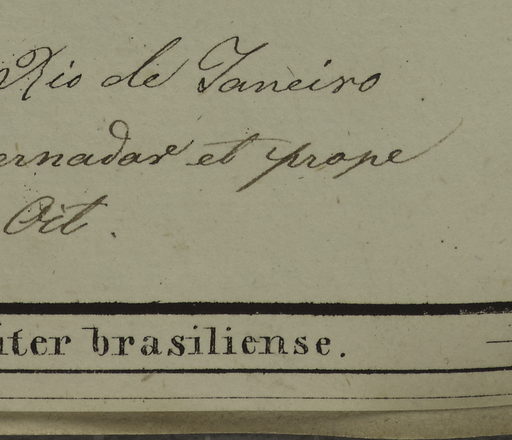 Rio de Janeiro
ernador et prope
Oit.
iter brasiliense.